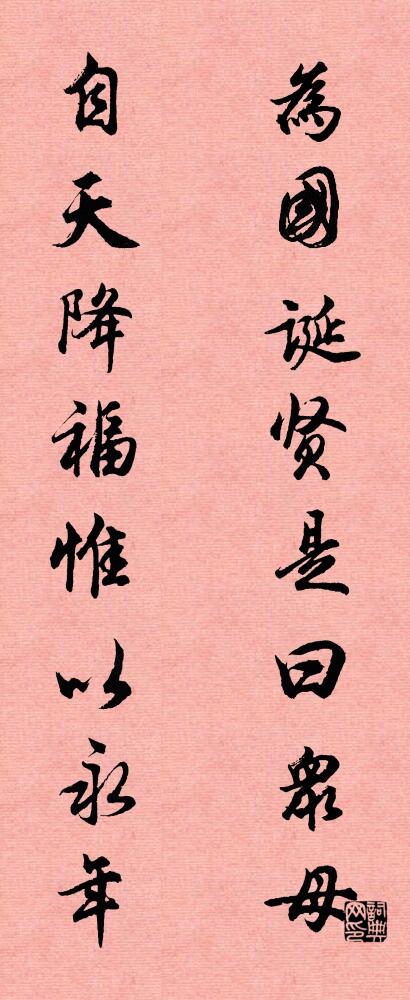 為國誕贤是曰眾母
自天降福惟以永年
詞典网印